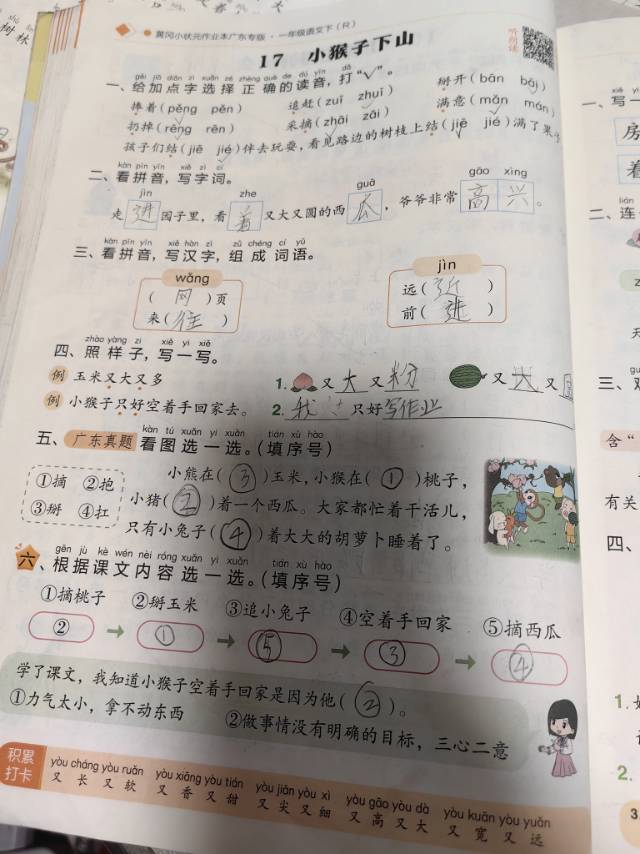 黄冈小状元作业本广东专版·一年级语文下（R）
17 小猴子下山
听朗读
gěi jiā diǎn zì xuǎn zé zhèng què de dú yīn dǎ
一、给加点字选择正确的读音，打“√”。
捧着（pěng pěn） 追赶（zuī zhuī） 掰开（bān bāi）
扔掉（rēng rēn） 采摘（zhāi zāi） 满意（mǎn mán）
孩子们结（jiē jié）伴去玩耍，看见路边的树枝上结（jiē jié）满了果
kàn pīn yīn xiě zì cí
二、看拼音，写字词。
jìn zhe guā gāo xìng
走进园子里，看着又大又圆的西瓜，爷爷非常高兴。
kàn pīn yīn xiě hàn zì zǔ chéng cí yǔ
三、看拼音，写汉字，组成词语。
wǎng jìn
（网）页 远（近）
来（往） 前（进）
zhào yàng zi xiě yi xiě
四、照样子，写一写。
例 玉米又大又多 1. 又大又粉 又大又
例 小猴子只好空着手回家去。 2. 我 只好写作业
kàn tú xuǎn yi xuǎn tián xù hào
五、广东真题 看图选一选。（填序号）
①摘 ②抱
③掰 ④扛
小熊在（③）玉米，小猴在（①）桃子，
小猪（②）着一个西瓜。大家都忙着干活儿，
只有小兔子（④）着大大的胡萝卜睡着了。
gēn jù kè wén nèi róng xuǎn yi xuǎn tián xù hào
六、根据课文内容选一选。（填序号）
①摘桃子 ②掰玉米 ③追小兔子 ④空着手回家 ⑤摘西瓜
② → ① → ⑤ → ③ → ④
学了课文，我知道小猴子空着手回家是因为他（②）。
①力气太小，拿不动东西 ②做事情没有明确的目标，三心二意
积累打卡
yòu cháng yòu ruǎn yòu xiāng yòu tián yòu jiān yòu xì yòu gāo yòu dà yòu kuān yòu yuǎn
又长又软 又香又甜 又尖又细 又高又大 又宽又远
一、写
房
着
lián
二、连
三、对
含“
有关
四、
1.
2.
3